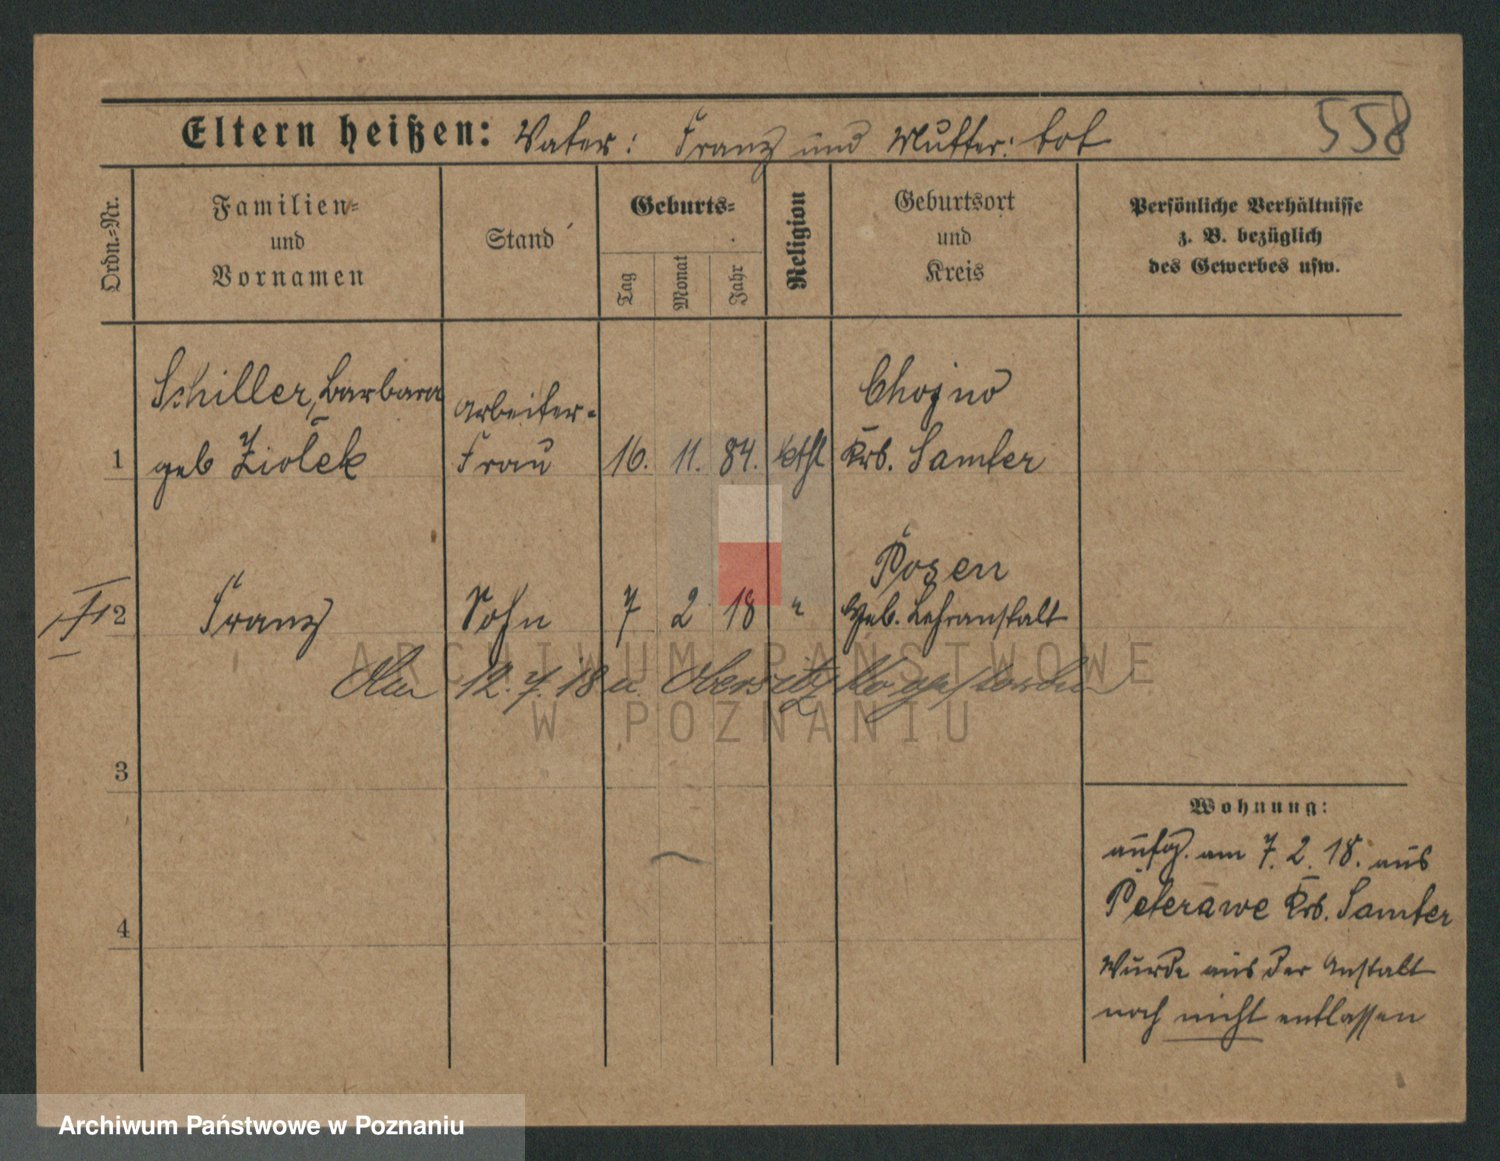 Eltern heißen: Vater: Franz und Mutter: tot
558
Ordn.-Nr.
Familien- und Vornamen
Stand
Geburts-
Tag
Monat
Jahr
Religion
Geburtsort und Kreis
Persönliche Verhältnisse z. B. bezüglich des Gewerbes usw.
Schiller, Barbara
geb Ziolek
Arbeiter-
Frau
1
16. 11. 84. kthl
Chojno
Krs. Samter
2
Franz
Sohn
7 2 18 "
Posen
Heb. Lehranstalt
12. 4. 18 n. Obersitzko
3
4
Wohnung:
aufg. am 7. 2. 18. aus
Peterawe Krs. Samter
Wurde aus der Anstalt
noch nicht entlassen
ARCHIWUM PAŃSTWOWE
W POZNANIU
Archiwum Państwowe w Poznaniu